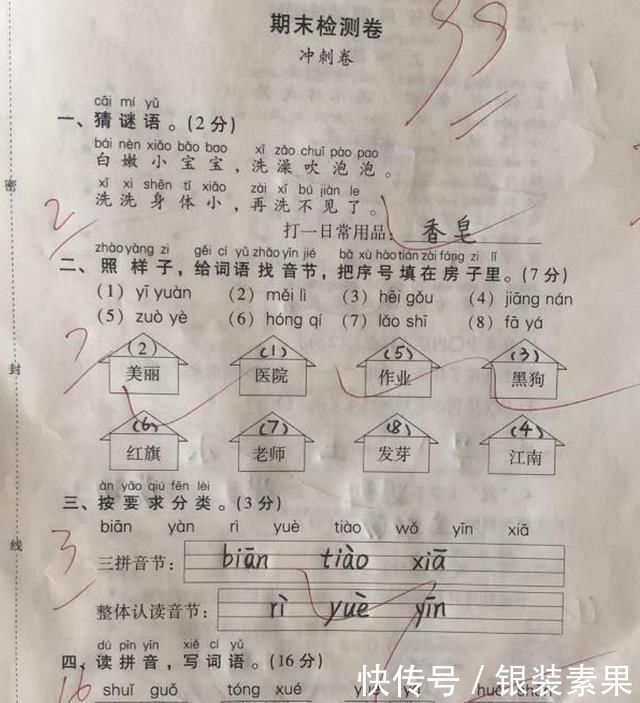 期末检测卷
99
冲刺卷
cāi mí yǔ
一、猜谜语。(2分)
bái nèn xiǎo bǎo bao xǐ zǎo chuī pào pao
白嫩小宝宝,洗澡吹泡泡。
xǐ xi shēn tǐ xiǎo zài xǐ bú jiàn le
洗洗身体小,再洗不见了。
2
打一日常用品: 香皂
zhào yàng zi gěi cí yǔ zhǎo yīn jié bǎ xù hào tián zài fáng zi lǐ
二、照样子,给词语找音节,把序号填在房子里。(7分)
(1) yī yuàn (2) měi lì (3) hēi gǒu (4) jiāng nán
(5) zuò yè (6) hóng qí (7) lǎo shī (8) fā yá
7
(2) (1) (5) (3)
美丽 医院 作业 黑狗
(6) (7) (8) (4)
红旗 老师 发芽 江南
àn yāo qiú fēn lèi
三、按要求分类。(3分)
biān yàn rì yuè tiào wǒ yīn xiā
3
三拼音节: biān tiào xiā
整体认读音节: rì yuè yīn
密
封
线
dú pīn yīn xiě cí yǔ
四、读拼音,写词语。(16分)
16
shuǐ guǒ tóng xué
快传号/银装素果